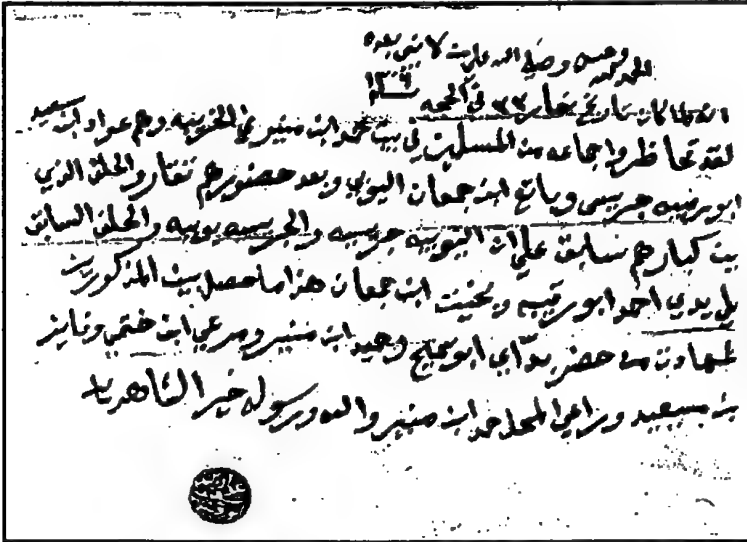 الحمد لله وحده وصلى الله على من لا نبي بعده
١٣٠٩
انه لما كان تاريخ نهار ٢٣ في الحجه
لقد تحاظروا جماعه من المسلمين في بيت محمد ابن منير في الخريبه وهم عواد ابن سعيد
ابو رقيبه جريسي وباتع ابن جمعان اليوبي وبعد حضورهم تقاروا الحلف الذي
بين كبارهم سابق على ان اليوبيه جريسيه والجريسيه يوبيه والحلف السابق
يلي يدي احمد ابو رقيبه وبخيت ابن جمعان هذا ما حصل بين المذكورين
شهادت من حضر ابن منير ومرعي ابن ختمي وفايز
بن سعيد وراعي المحل حمد ابن منير والله ورسوله خير الشاهدين